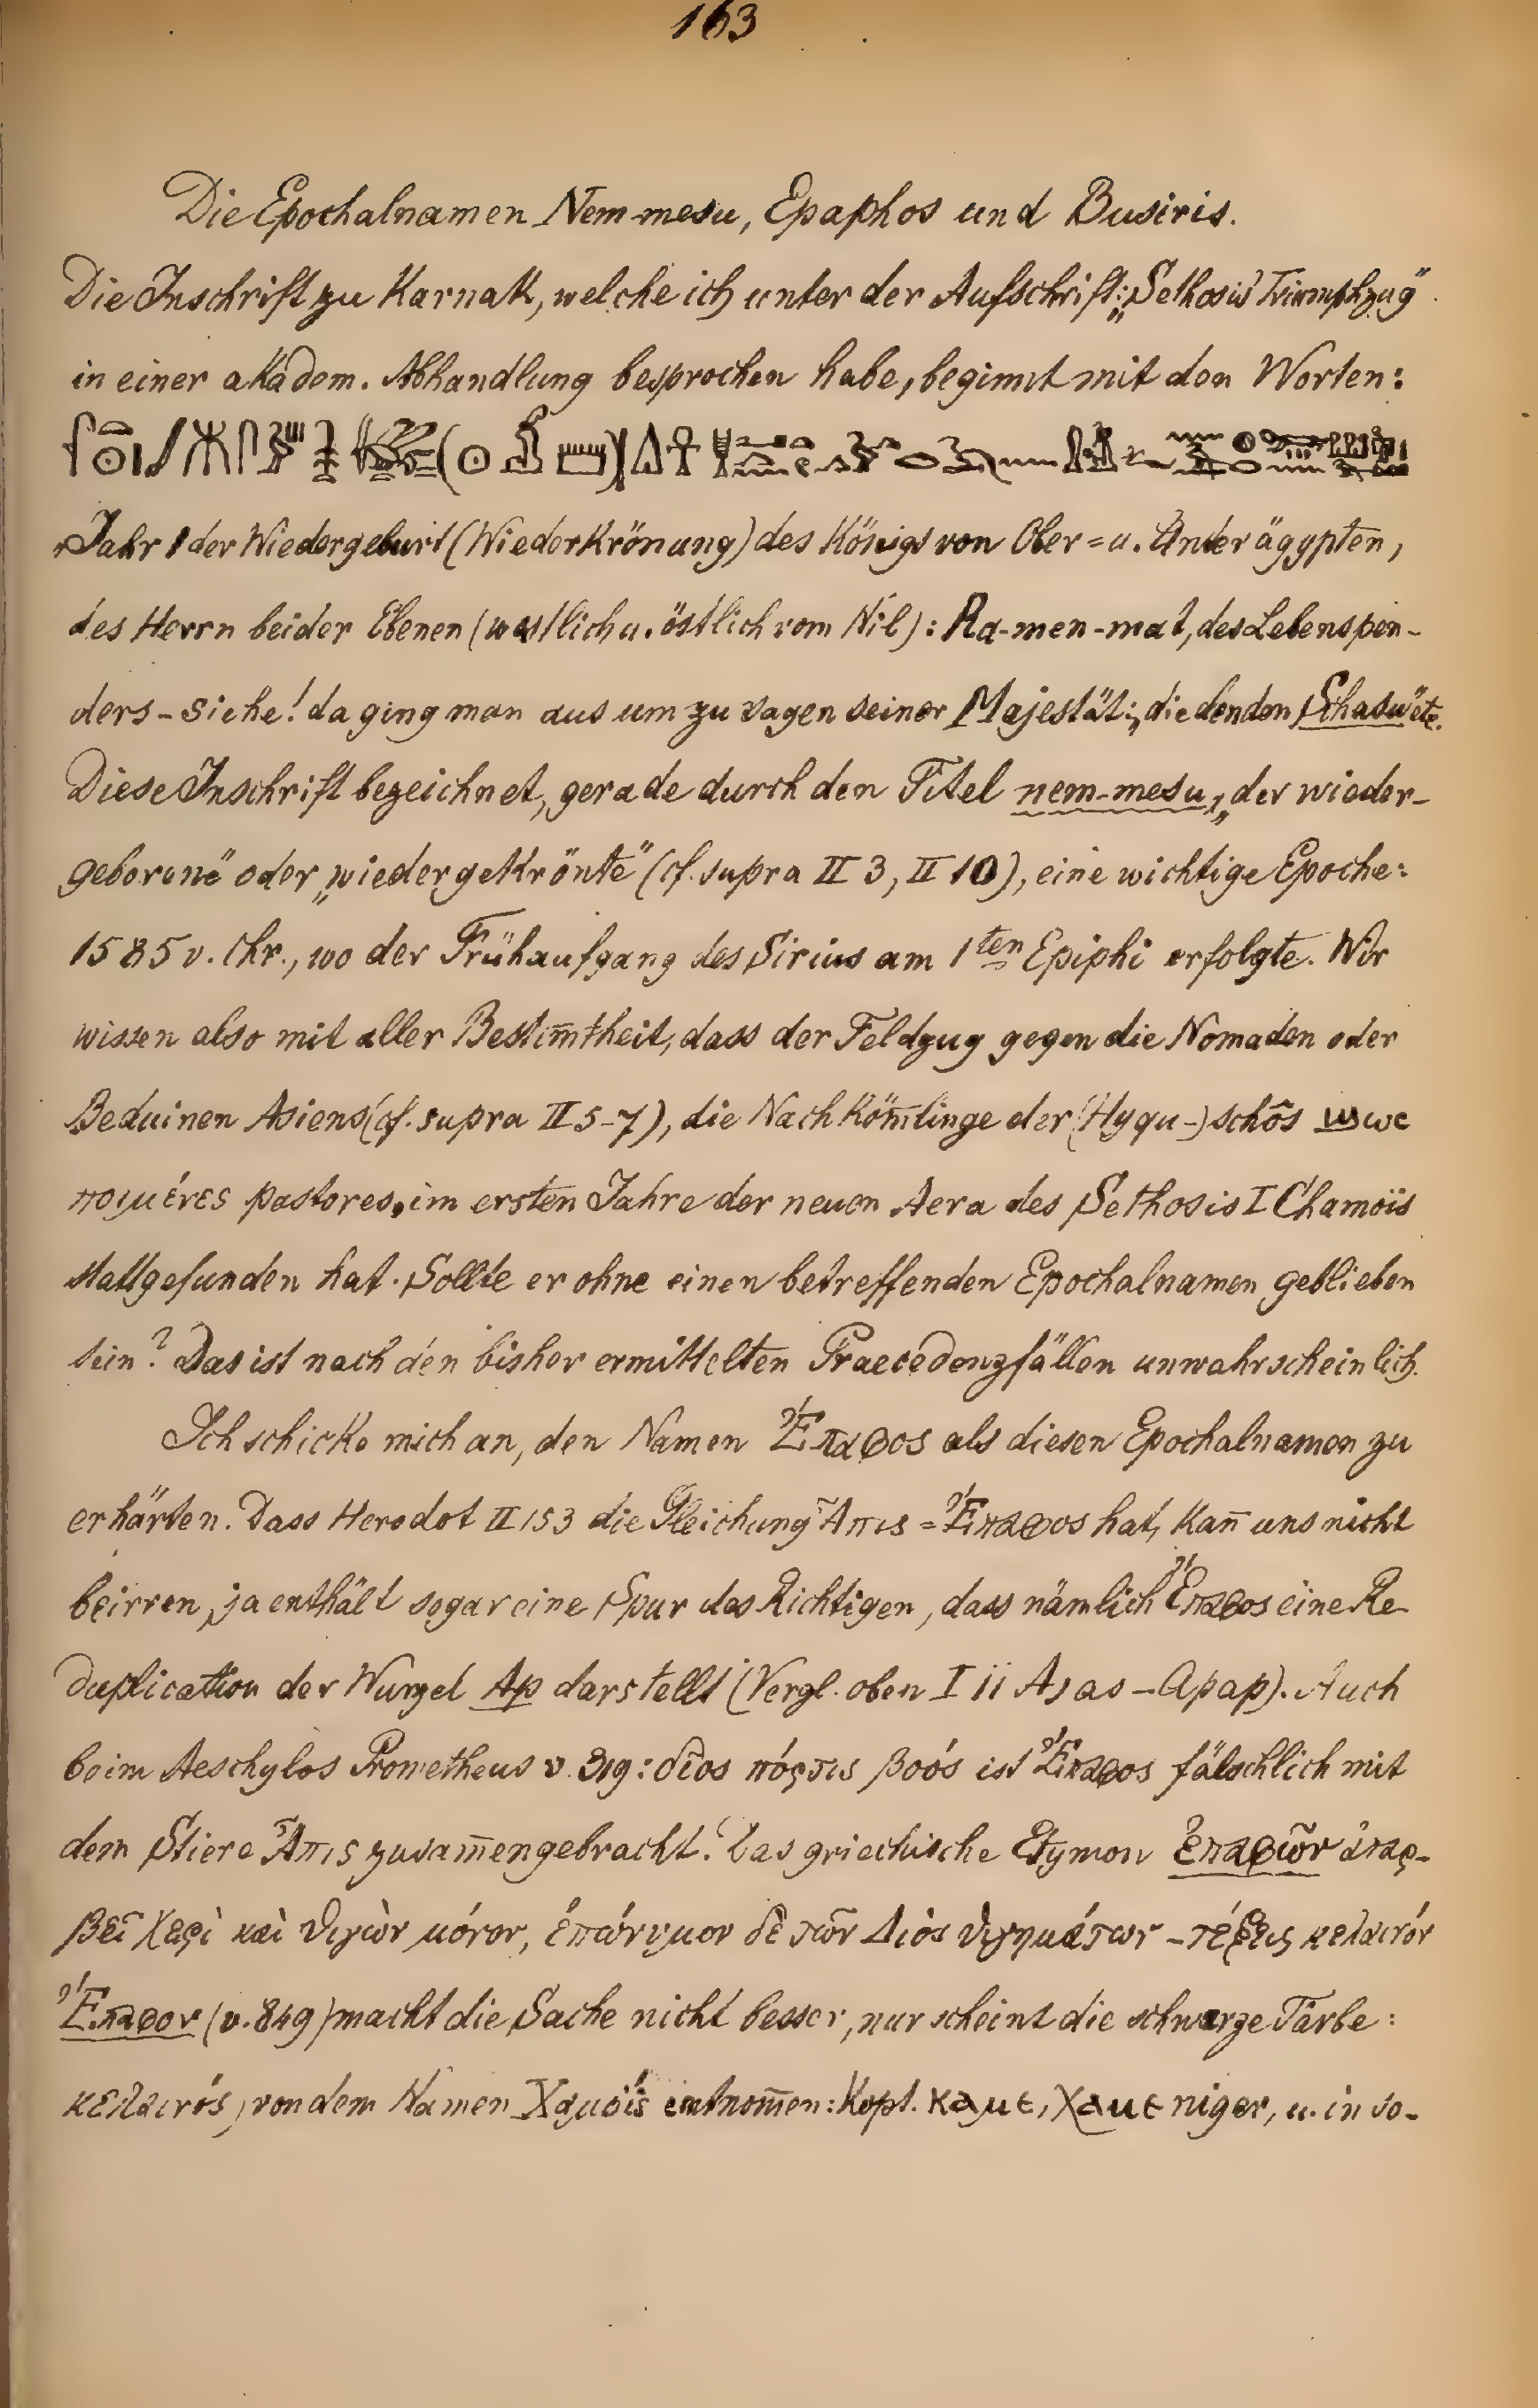 163
Die Epochalnamen Nem-mesu, Epaphos und Busiris.
Die Inschrift zu Karnak, welche ich unter der Aufschrift: „Sethosis' Triumphzug"
in einer akadem. Abhandlung besprochen habe, beginnt mit den Worten:
„Jahr 1 der Wiedergeburt (Wiederkrönung) des Königs von Ober= u. Unterägypten,
des Herrn beider Ebenen (westlich u. östlich vom Nil): Ra-men-mat, des Lebenspen-
ders – siehe! da ging man aus um zu sagen seiner Majestät: „die den den Schasu" etc.
Diese Inschrift bezeichnet, gerade durch den Titel nem-mesu, „der wieder-
geborene" oder „wiedergekrönte" (cf. supra II 3, II 10), eine wichtige Epoche:
1585 v. Chr., wo der Frühaufgang des Sirius am 1ten Epiphi erfolgte. Wir
wissen also mit aller Bestim̄theit, dass der Feldzug gegen die Nomaden oder
Beduinen Asiens (cf. supra II 5-7), die Nachköm̄linge der (Hyqu-) schôs ϣωc
ποιμένες pastores, im ersten Jahre der neuen Aera des Sethosis I Chamoïs
stattgefunden hat. Sollte er ohne einen betreffenden Epochalnamen geblieben
sein? Das ist nach den bisher ermittelten Praecedenzfällen unwahrscheinlich.
Ich schicke mich an, den Namen Ἔπαφος als diesen Epochalnamen zu
erhärten. Dass Herodot II 153 die Gleichung Ἆπις = Ἔπαφος hat, kan̄ uns nicht
beirren, ja enthält sogar eine Spur des Richtigen, dass nämlich Ἔπαφος eine Re-
duplication der Wurzel Ap darstellt (Vergl. oben I 11 Asas – Apap). Auch
beim Aeschylos Prometheus v. 319: δῖος πόρτις βοός ist Ἔπαφος fälschlich mit
dem Stiere Ἆπις zusam̄engebracht. Das griechische Etymon ἐπαφῶν ἀταρ-
βεῖ χερὶ καὶ θιγὼν μόνον, ἐπώνυμον δὲ τῶν Διὸς θιγημάτων – τέξεις κελαινόν
Ἔπαφον (v. 849) macht die Sache nicht besser, nur scheint die schwarze Farbe:
κελαινός, von dem Namen Χαμοΐς entnom̄en: Kopt. ⲕⲁⲙⲉ, ⲭⲁⲙⲉ niger, u. in so-